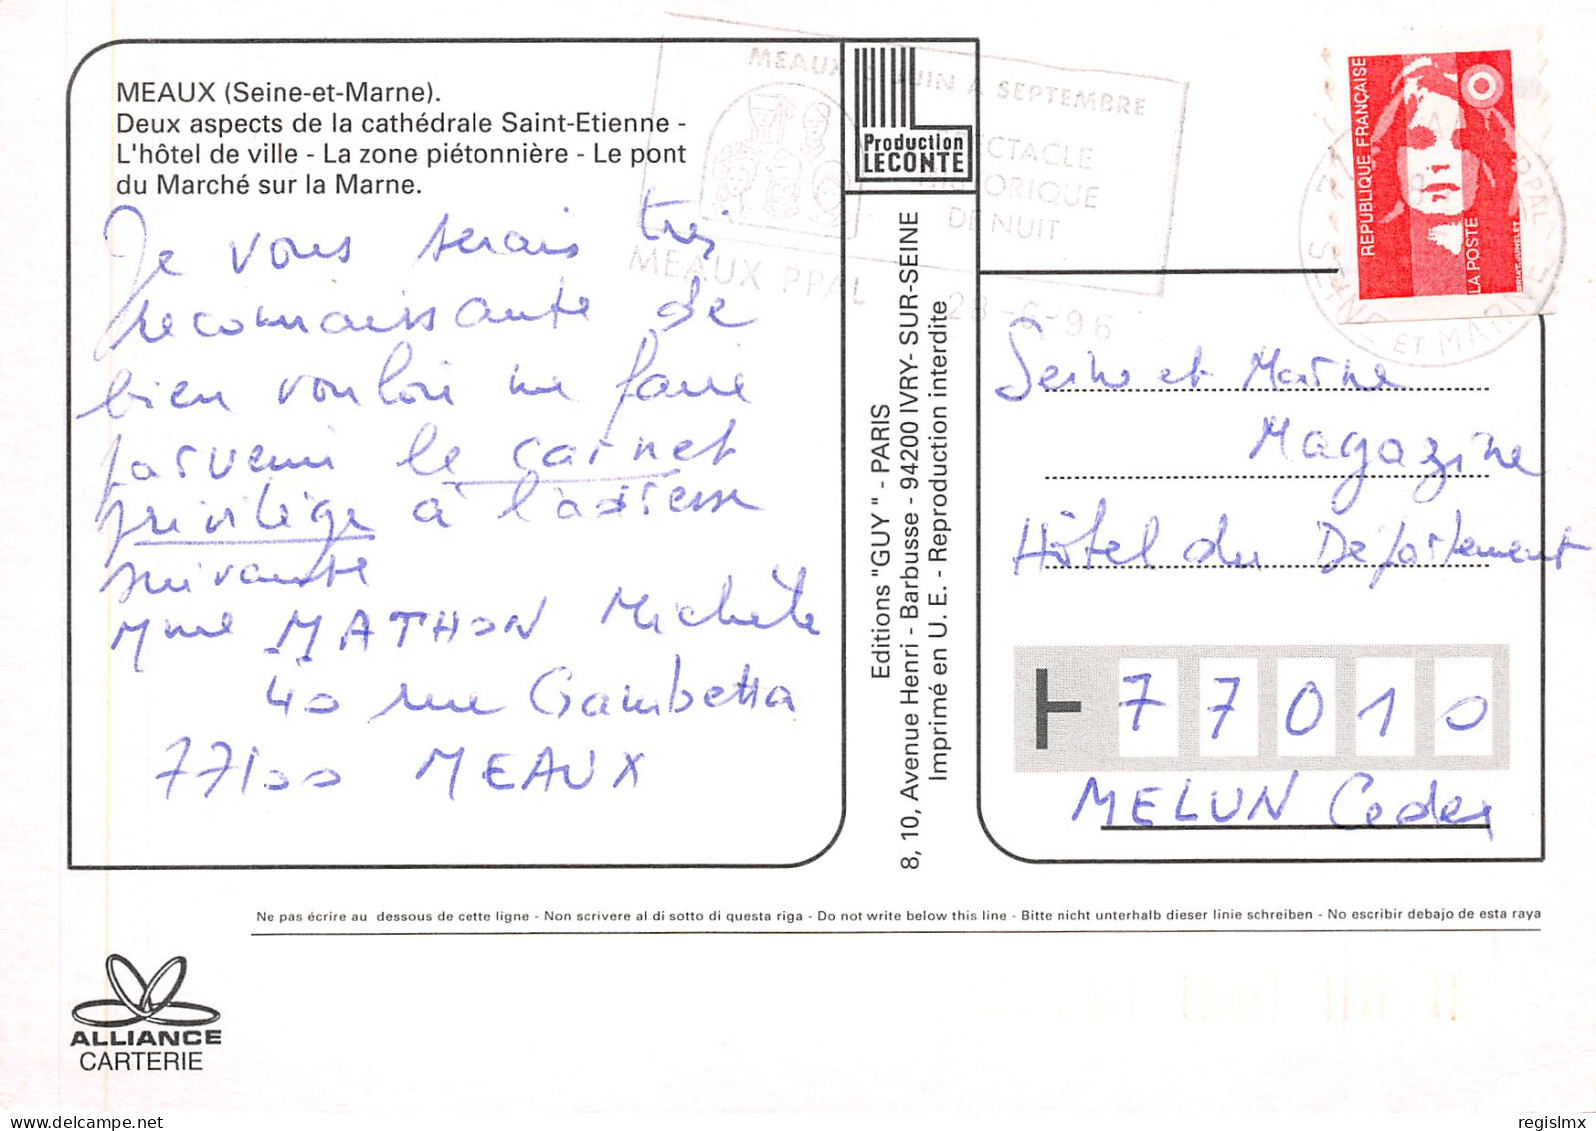 MEAUX (Seine-et-Marne).
Deux aspects de la cathédrale Saint-Etienne -
L'hôtel de ville - La zone piétonnière - Le pont
du Marché sur la Marne.
Je vous serais très
reconnaissante de
bien vouloir me faire
parvenir le carnet
privilège à l'adresse
suivante
Mme MATHON Michèle
40 rue Gambetta
77100 MEAUX
Production
LECONTE
Editions "GUY" - PARIS
8, 10, Avenue Henri - Barbusse - 94200 IVRY- SUR-SEINE
Imprimé en U. E. - Reproduction interdite
MEAUX JUIN A SEPTEMBRE
SPECTACLE
HISTORIQUE
DE NUIT
MEAUX PPAL
28-6-96
REPUBLIQUE FRANÇAISE
LA POSTE
SEINE ET MARNE
Seine et Marne
Magazine
Hôtel du Département
77010
MELUN Cedex
Ne pas écrire au dessous de cette ligne - Non scrivere al di sotto di questa riga - Do not write below this line - Bitte nicht unterhalb dieser linie schreiben - No escribir debajo de esta raya
ALLIANCE
CARTERIE
regislmx